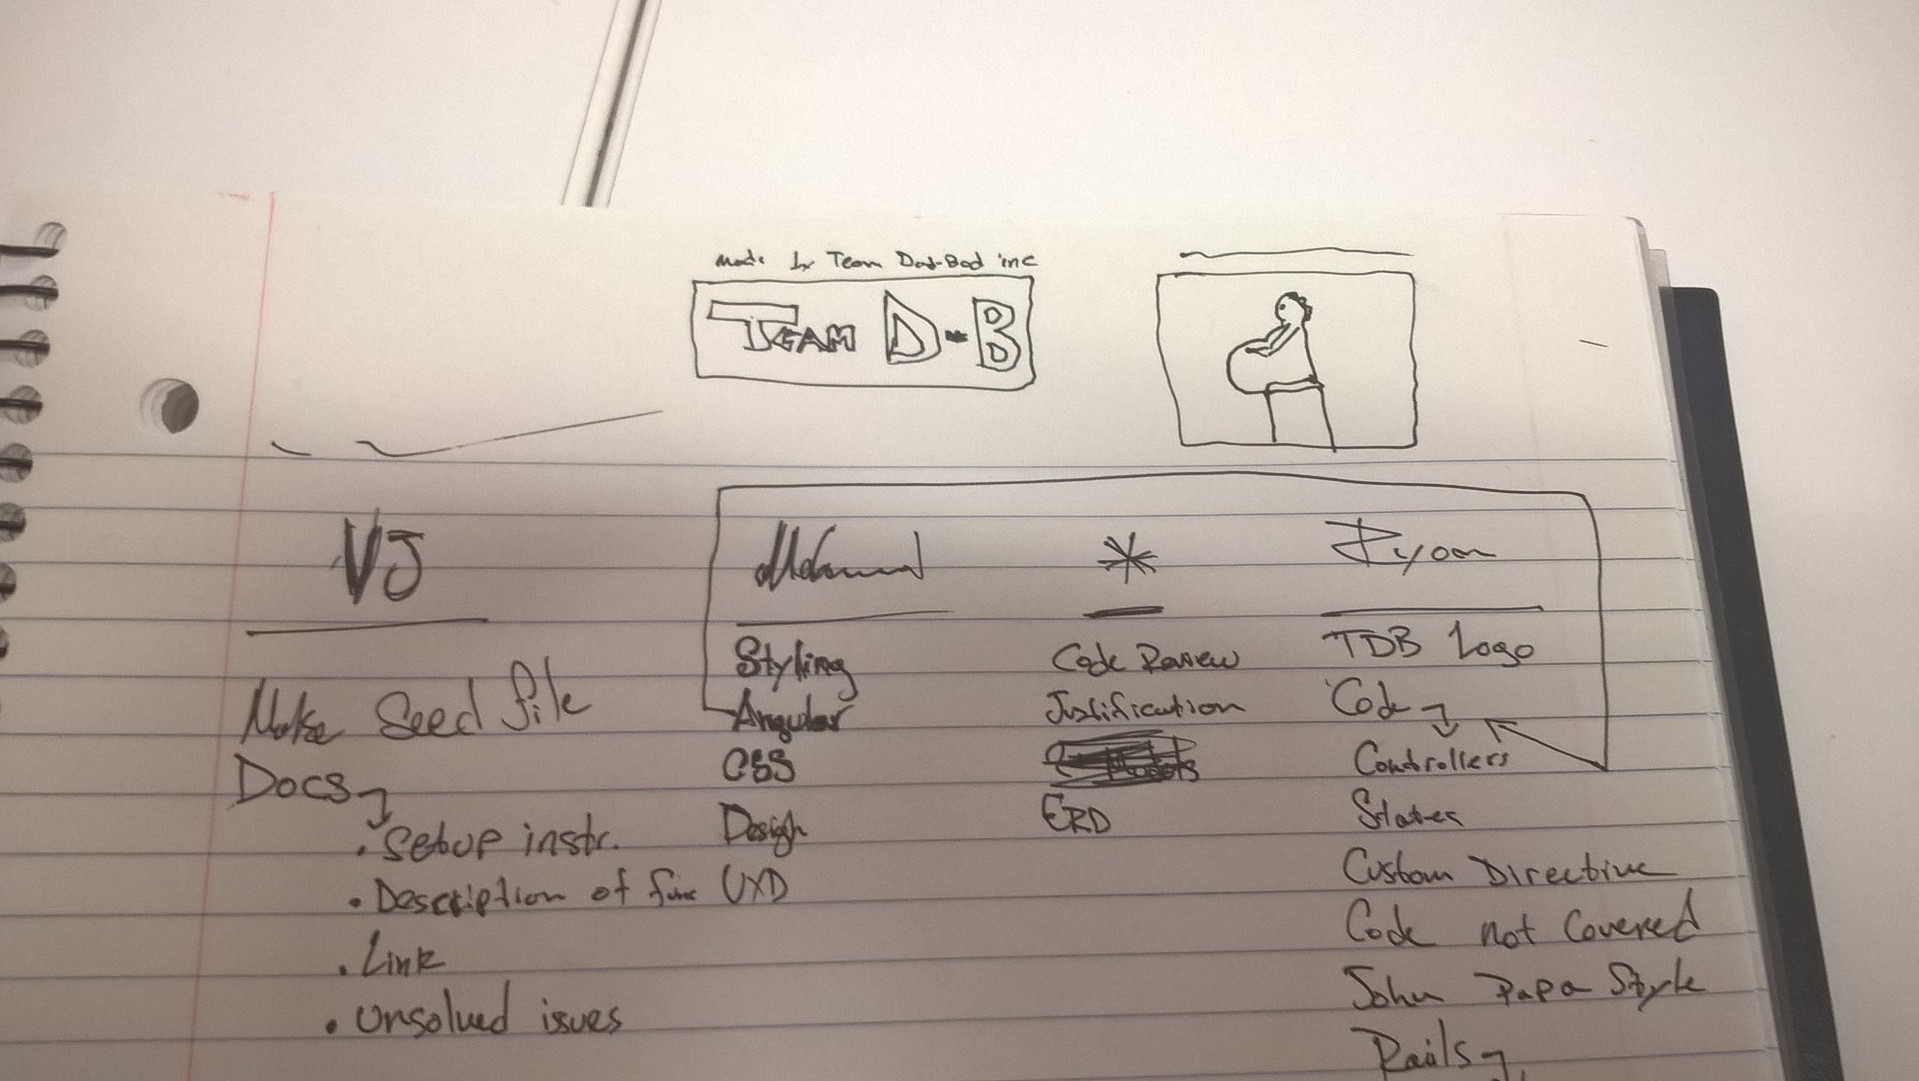 made by Team Dad-Bod inc
TEAM D-B
VJ
Make Seed file
Docs
• Setup instr.
• Description of func
• Link
• Unsolved issues
Styling
Angular
CSS
Design
UXD
*
Code Review
Justification
ERD
Ryan
TDB Logo
Code
Controllers
States
Custom Directive
Code not Covered
John Papa Style
Rails